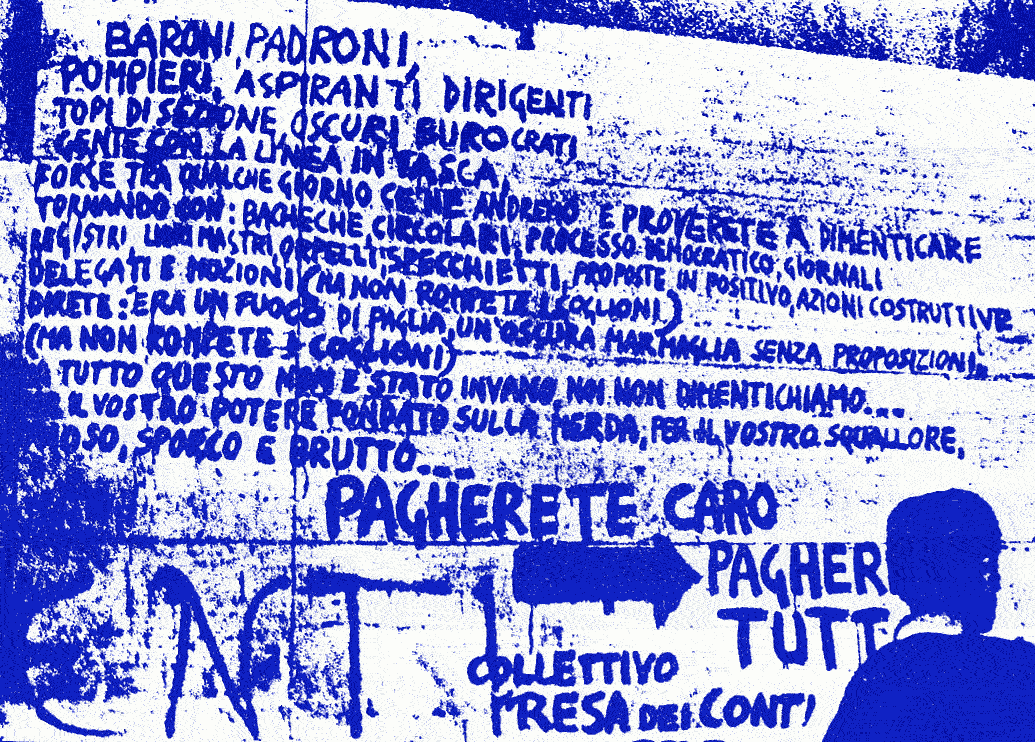 BARONI, PADRONI,
POMPIERI, ASPIRANTI DIRIGENTI
TOPI DI SEZIONE, OSCURI BUROCRATI
GENTE CON LA LINEA IN TASCA,
FORSE TRA QUALCHE GIORNO CE NE ANDREMO E PROVERETE A DIMENTICARE
TORNANDO CON: BACHECHE CIRCOLARI, PROCESSO DEMOCRATICO, GIORNALI
REGISTRI, LIBRI MASTRI ORPELLI, SPECCHIETTI, PROPOSTE IN POSITIVO, AZIONI COSTRUTTIVE
DELEGATI E MOZIONI (MA NON ROMPETE I COGLIONI)
DIRETE: ERA UN FUOCO DI PAGLIA, UN'OSCURA MARMAGLIA SENZA PROPOSIZIONI,
(MA NON ROMPETE I COGLIONI)
TUTTO QUESTO NON E STATO INVANO, NOI NON DIMENTICHIAMO...
IL VOSTRO POTERE FONDATO SULLA MERDA, PER IL VOSTRO SQUALLORE,
SPORCO E BRUTTO....
PAGHERETE CARO
PAGHER
TUTT
COLLETTIVO
PRESA DEI CONTI